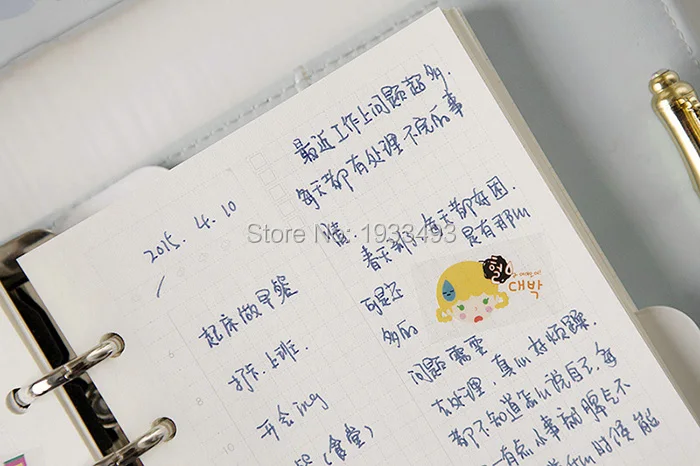 2015. 4. 10
起床做早餐
打卡.上班.
开会ing
(食堂)
最近工作上问题超多.
每天都有处理不完的事
情
春天到了,每天都好困.
可是还是有那么
多的
问题需要
去处理,真心好烦躁.
都不知道怎么说自己.每
一有点小事就脾气不
时候能
헐
대박
6
8
10
Store No: 1933493